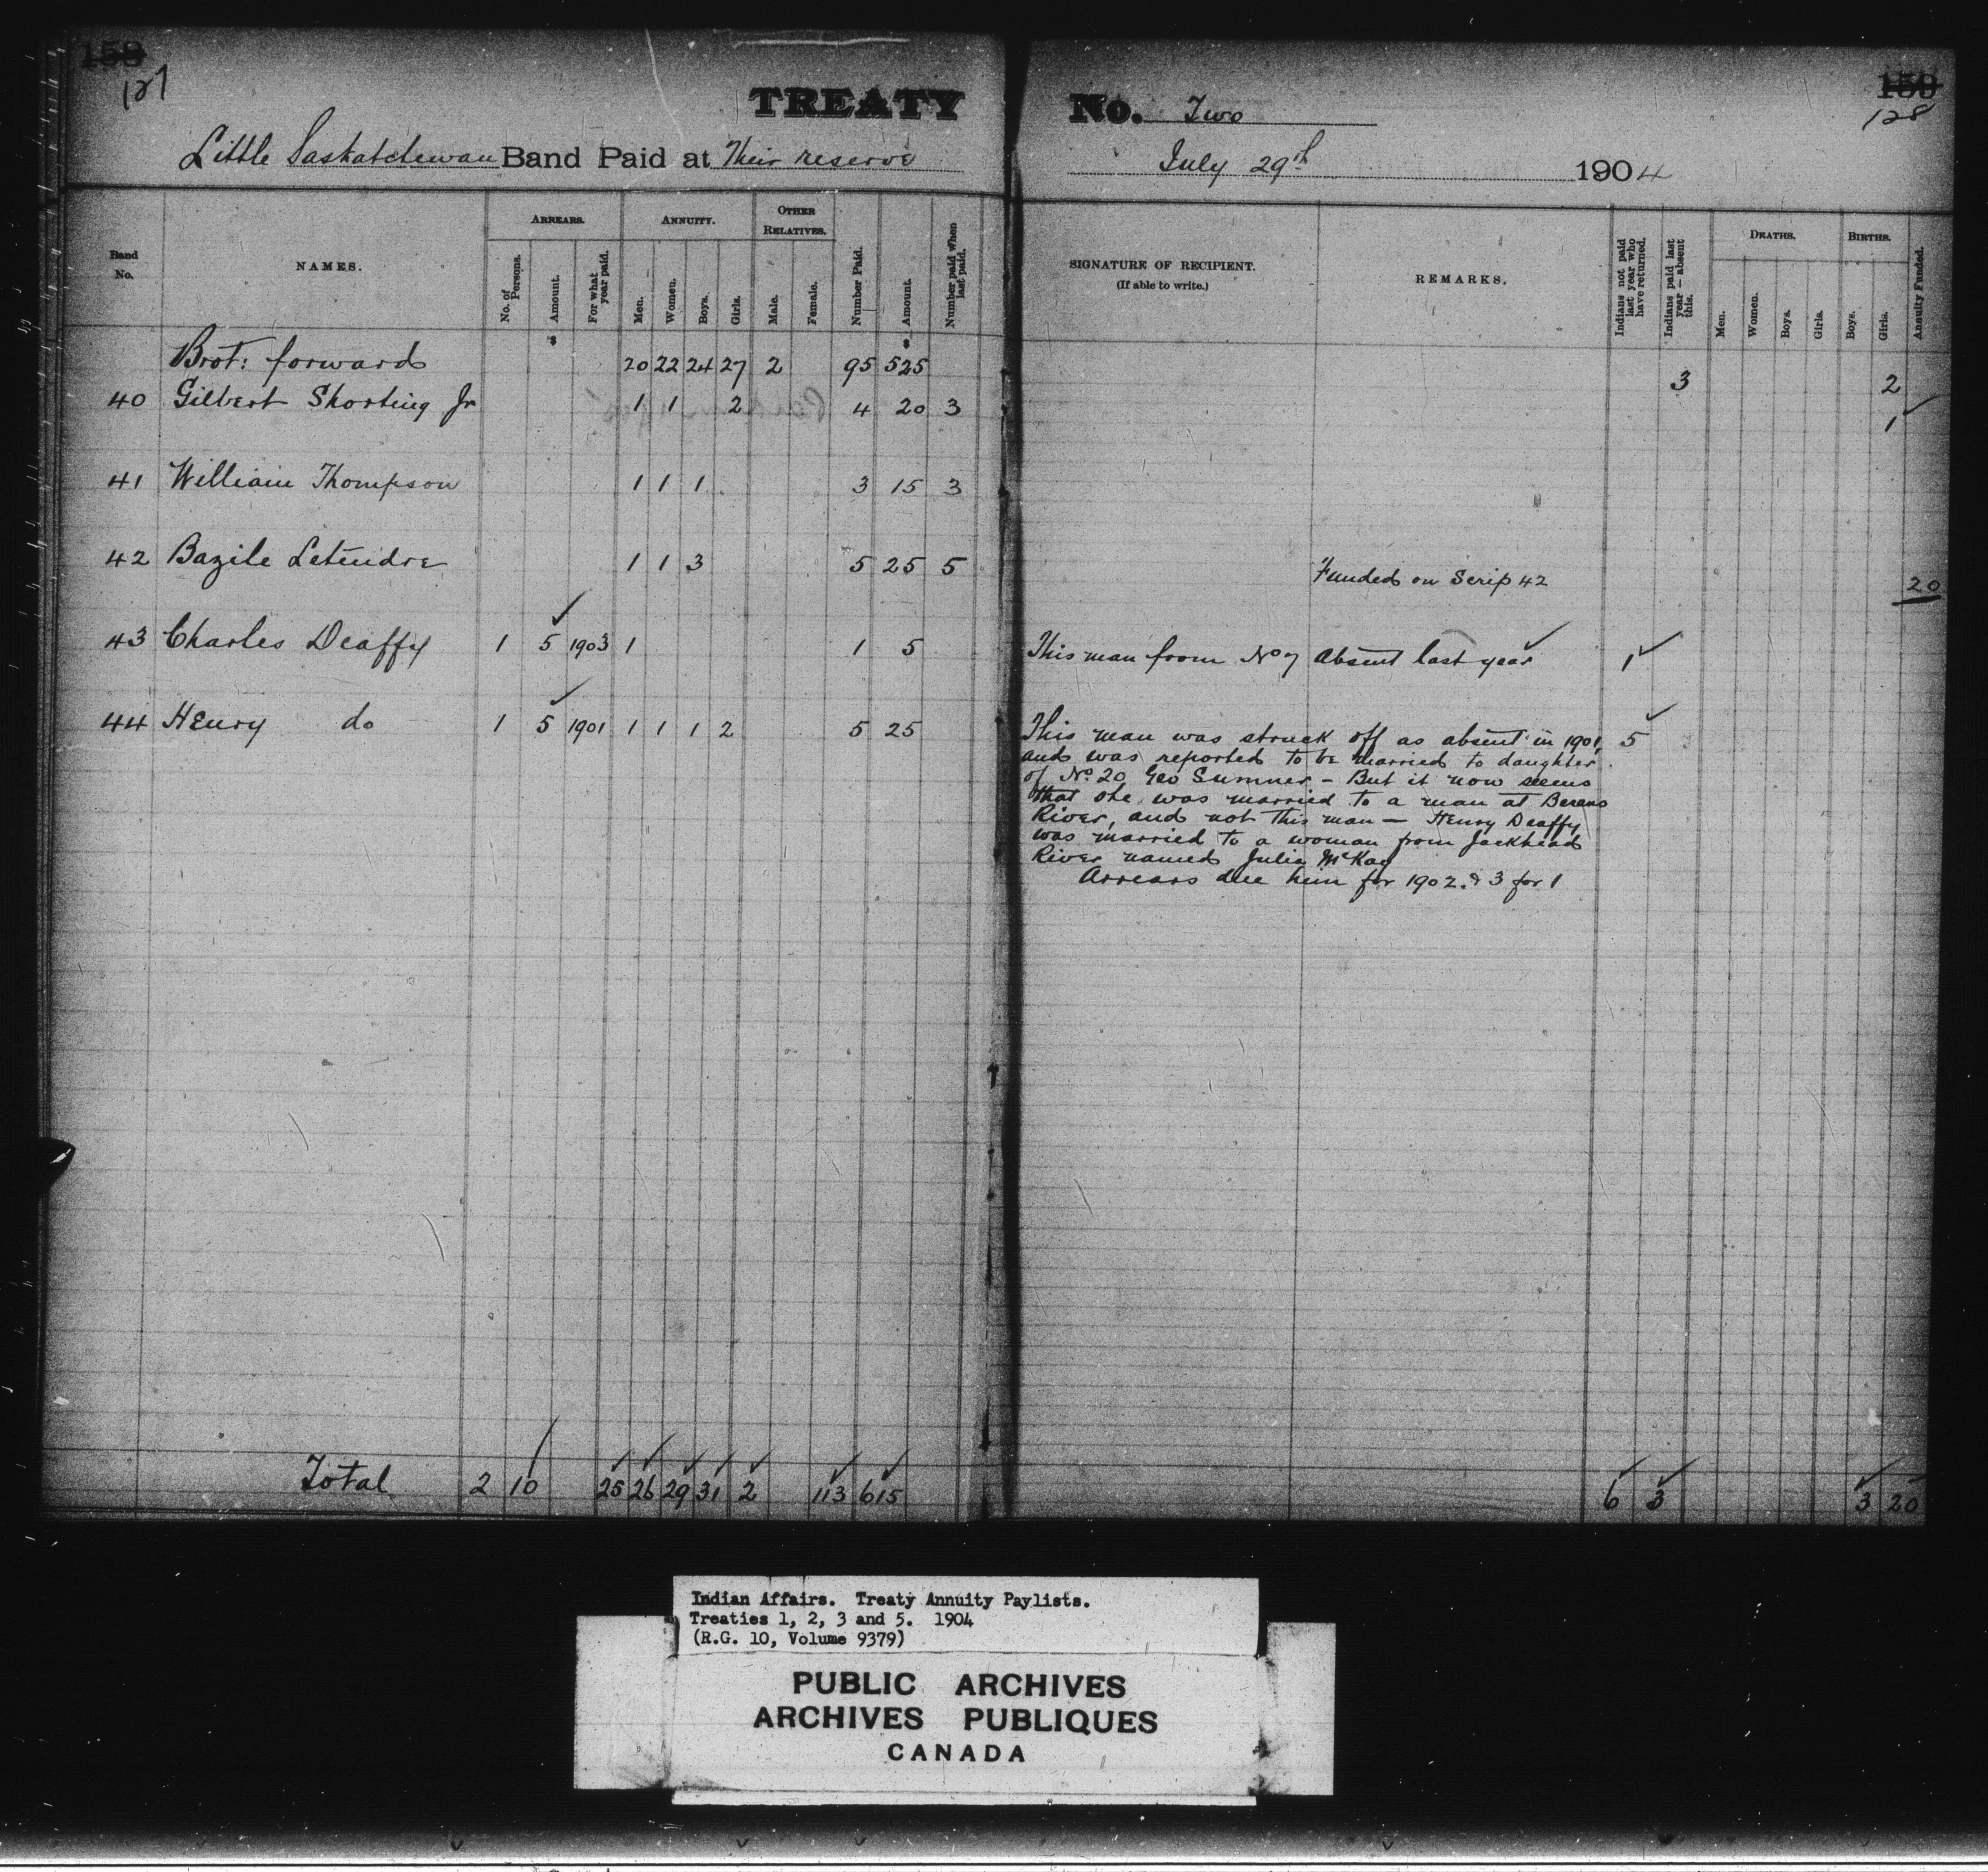 158
127
TREATY
Little Saskatchewan Band Paid at Their reserve
Band No.
NAMES.
ARREARS.
No. of Persons.
Amount.
For what year paid.
ANNUITY.
Men.
Women.
Boys.
Girls.
OTHER RELATIVES.
Male.
Female.
Number Paid.
Amount.
Number paid when last paid.
$ $
Brot: forward 20 22 24 27 2 95 525
40 Gilbert Shorting Jr 1 1 2 4 20 3
41 William Thompson 1 1 1 3 15 3
42 Bazile Letendre 1 1 3 5 25 5
43 Charles Deaffy 1 5 1903 1 1 5
44 Henry do 1 5 1901 1 1 1 2 5 25
Total 2 10 25 26 29 31 2 113 615
128
No. Two
July 29th 1904
SIGNATURE OF RECIPIENT.
(If able to write.)
REMARKS.
Indians not paid last year who have returned.
Indians paid last year — absent this.
DEATHS.
Men.
Women.
Boys.
Girls.
BIRTHS.
Boys.
Girls.
Annuity Funded.
3 2
1
Funded on Scrip 42 20
This man from No 7 Absent last year 1
This man was struck off as absent in 1901, 5
and was reported to be married to daughter
of No. 20 Geo Sumner - But it now seems
that she was married to a man at Berens
River, and not this man — Henry Deaffy
was married to a woman from Jackhead
River named Julia McKay
Arrears due him for 1902 & 3 for 1
6 3 3 20
Indian Affairs. Treaty Annuity Paylists.
Treaties 1, 2, 3 and 5. 1904
(R.G. 10, Volume 9379)
PUBLIC ARCHIVES
ARCHIVES PUBLIQUES
CANADA